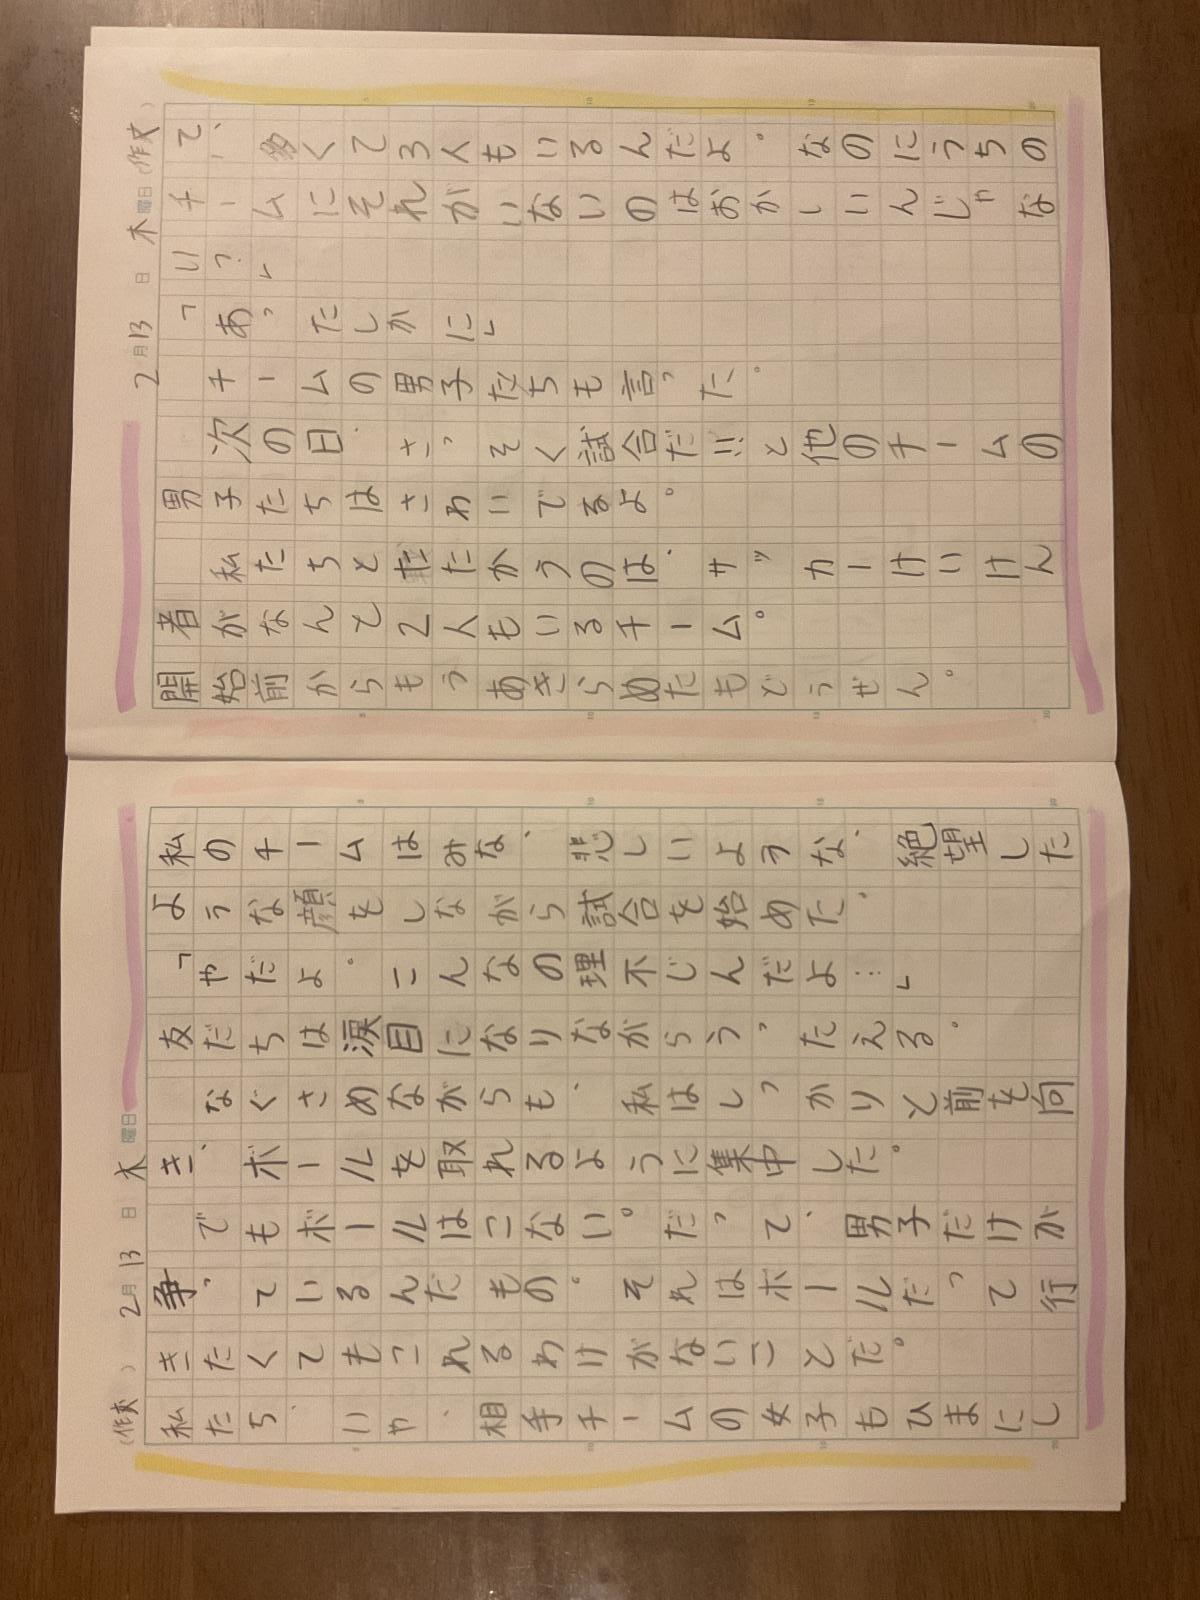 2月13日木曜日(作文)
て、多くて3人もいるんだよ。なのにうちの
チームにそれがいないのはおかしいんじゃな
い?」
「あったしかに」
チームの男子たちも言った。
次の日、さっそく試合だ!!と他のチームの
男子たちはさわいでるよ。
私たちとたたかうのは、サッカーけいけん
者がなんと2人もいるチーム。
開始前からもうあきらめたもどうぜん。
私のチームはみな、悲しいような、絶望した
ような顔をしながら試合を始めた。
「やだよ。こんなの理不じんだよ…」
友だちは涙目になりながらうったえる。
なぐさめながらも、私はしっかりと前を向
き、ボールを取れるように集中した。
でもボールはこない。だって、男子だけが
争っているんだもの。それはボールだって行
きたくてもこれるわけがないことだ。
私たち、いや、相手チームの女子もひまにし
(作文) 2月13日木曜日